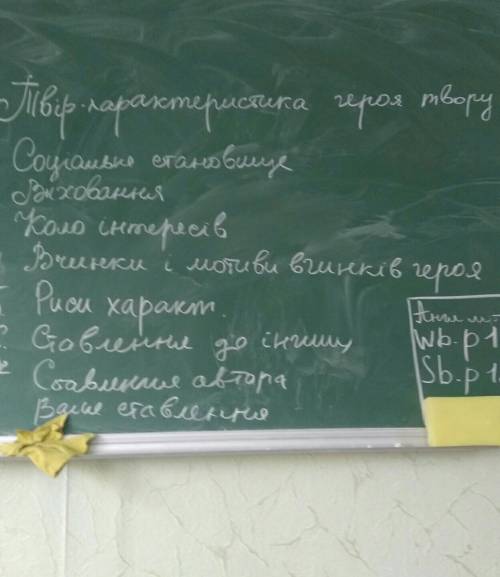 Твір-характеристика героя твору
Соціальне становище
Виховання
Коло інтересів
Вчинки і мотиви вчинків героя
Риси характ.
Ставлення до інших
Ставлення автора
Ваше ставлення
Wb. p 1
Sb. p 1